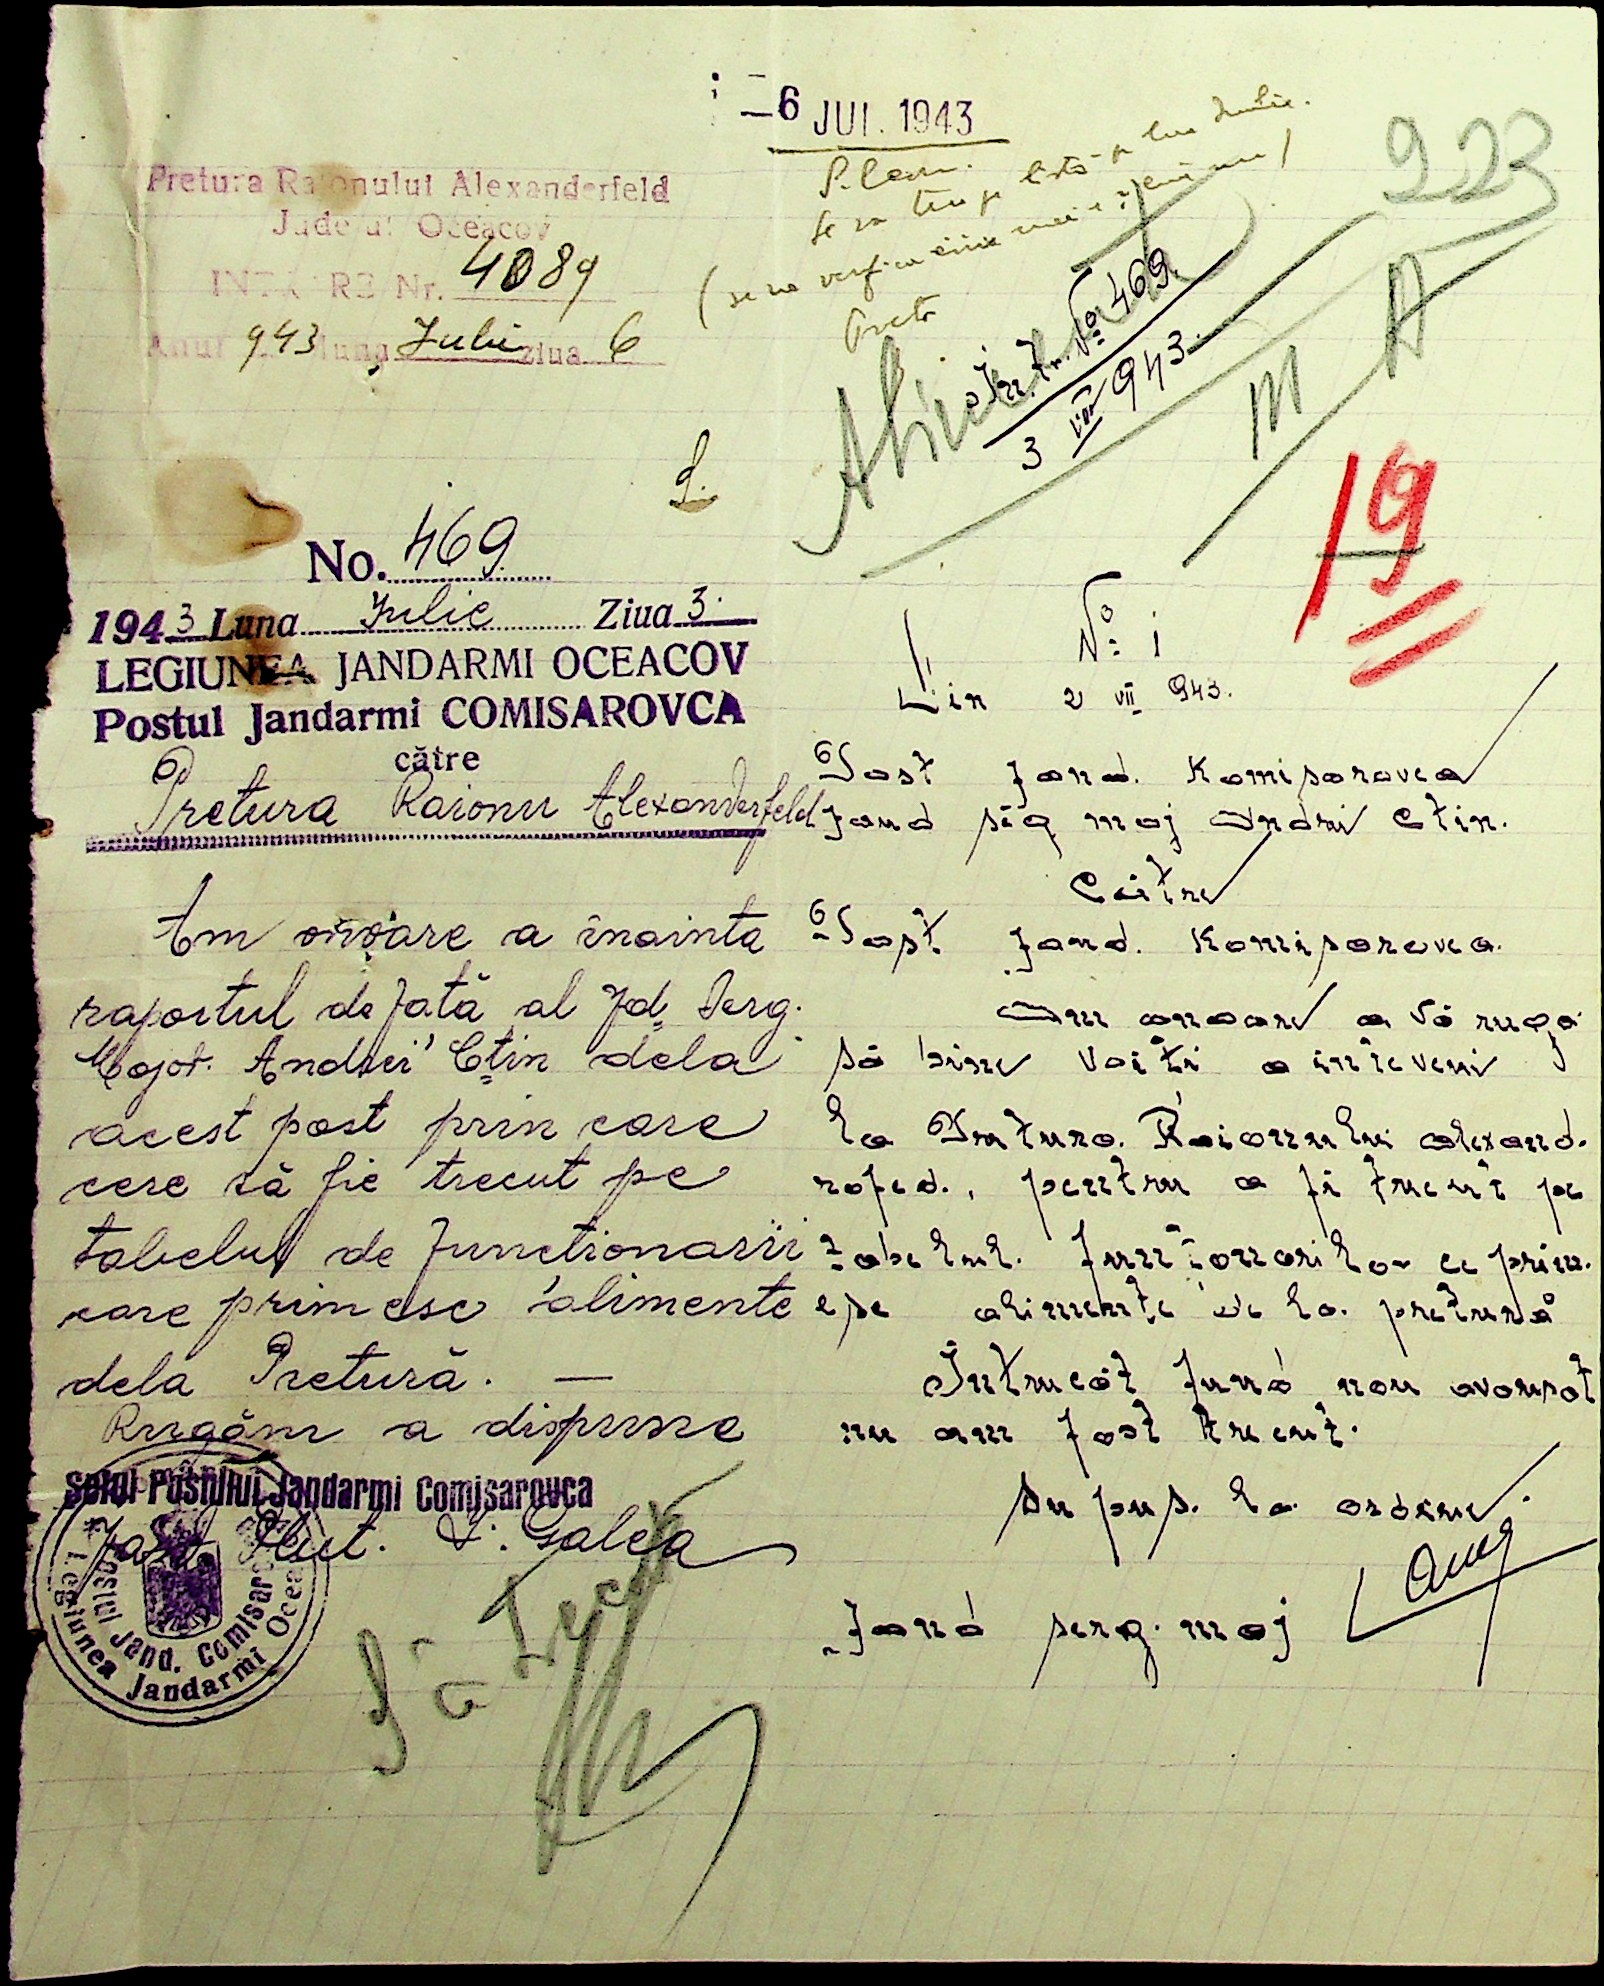 -6 JUI. 1943
Pretura Raionului Alexanderfeld
Județul Oceacov
INTRARE Nr. 4089
Anul 943 luna Iulie ziua 6
P. Cont.
Se va trece pe listă pe luna Iulie.
(se va verifica cine mai e
Pretor
223
Intr. No 469.
3 VII 943.
M A
19
No. 469
1943 Luna Iulie Ziua 3.
LEGIUNEA JANDARMI OCEACOV
Postul Jandarmi COMISAROVCA
către
Pretura Raionu Alexanderfeld
Am onoare a înainta
raportul de față al Jd. Serg.
Major. Andrei C-tin dela
acest post prin care
cere să fie trecut pe
tabelul de functionarii
care primesc alimente
dela Pretură. —
Rugăm a dispune
Șeful Postului Jandarmi Comisarovca
Jand. Plut. V. Galea
Legiunea Jandarmi Oceacov
Postul Jand. Comisarovca
Să Trec
No: 1
Din 2 VII 943.
Post Jand. Komisarovca
Jand serg maj Andrei Ctin.
Către
Post Jand. Komisarovca.
Am onoare a vă ruga
să bine voiți a interveni
la Pretura Raionului Alexand.
rofed., pentru a fi trecut pe
tabelul. Funționarilor ce prim.
epe alimente de la. pretură
Întrucât fiind nou avansat
nu am fost trecut.
Supus. la ordine.
Jand serg. maj